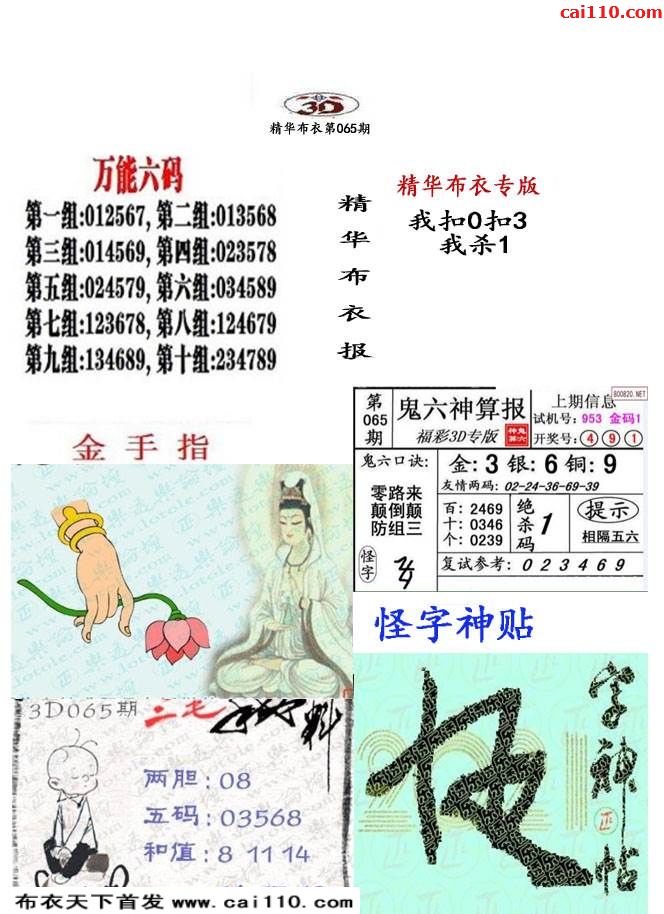 cai110.com
3D
精华布衣第065期
万能六码
第一组:012567, 第二组:013568
第三组:014569, 第四组:023578
第五组:024579, 第六组:034589
第七组:123678, 第八组:124679
第九组:134689, 第十组:234789
精华布衣报
精华布衣专版
我扣0扣3
我杀1
金手指
800820.NET
第065期
鬼六神算报
福彩3D专版
上期信息
试机号: 953 金码1
开奖号: 4 9 1
鬼六口诀:
零路来
颠倒颠
防组三
怪字
金: 3 银: 6 铜: 9
友情两码: 02-24-36-69-39
百: 2469
十: 0346
个: 0239
绝杀码 1
提示
相隔五六
复试参考: 0 2 3 4 6 9
怪字神贴
字神帖
3D065期
两胆: 08
五码: 03568
和值: 8 11 14
布衣天下首发 www.cai110.com